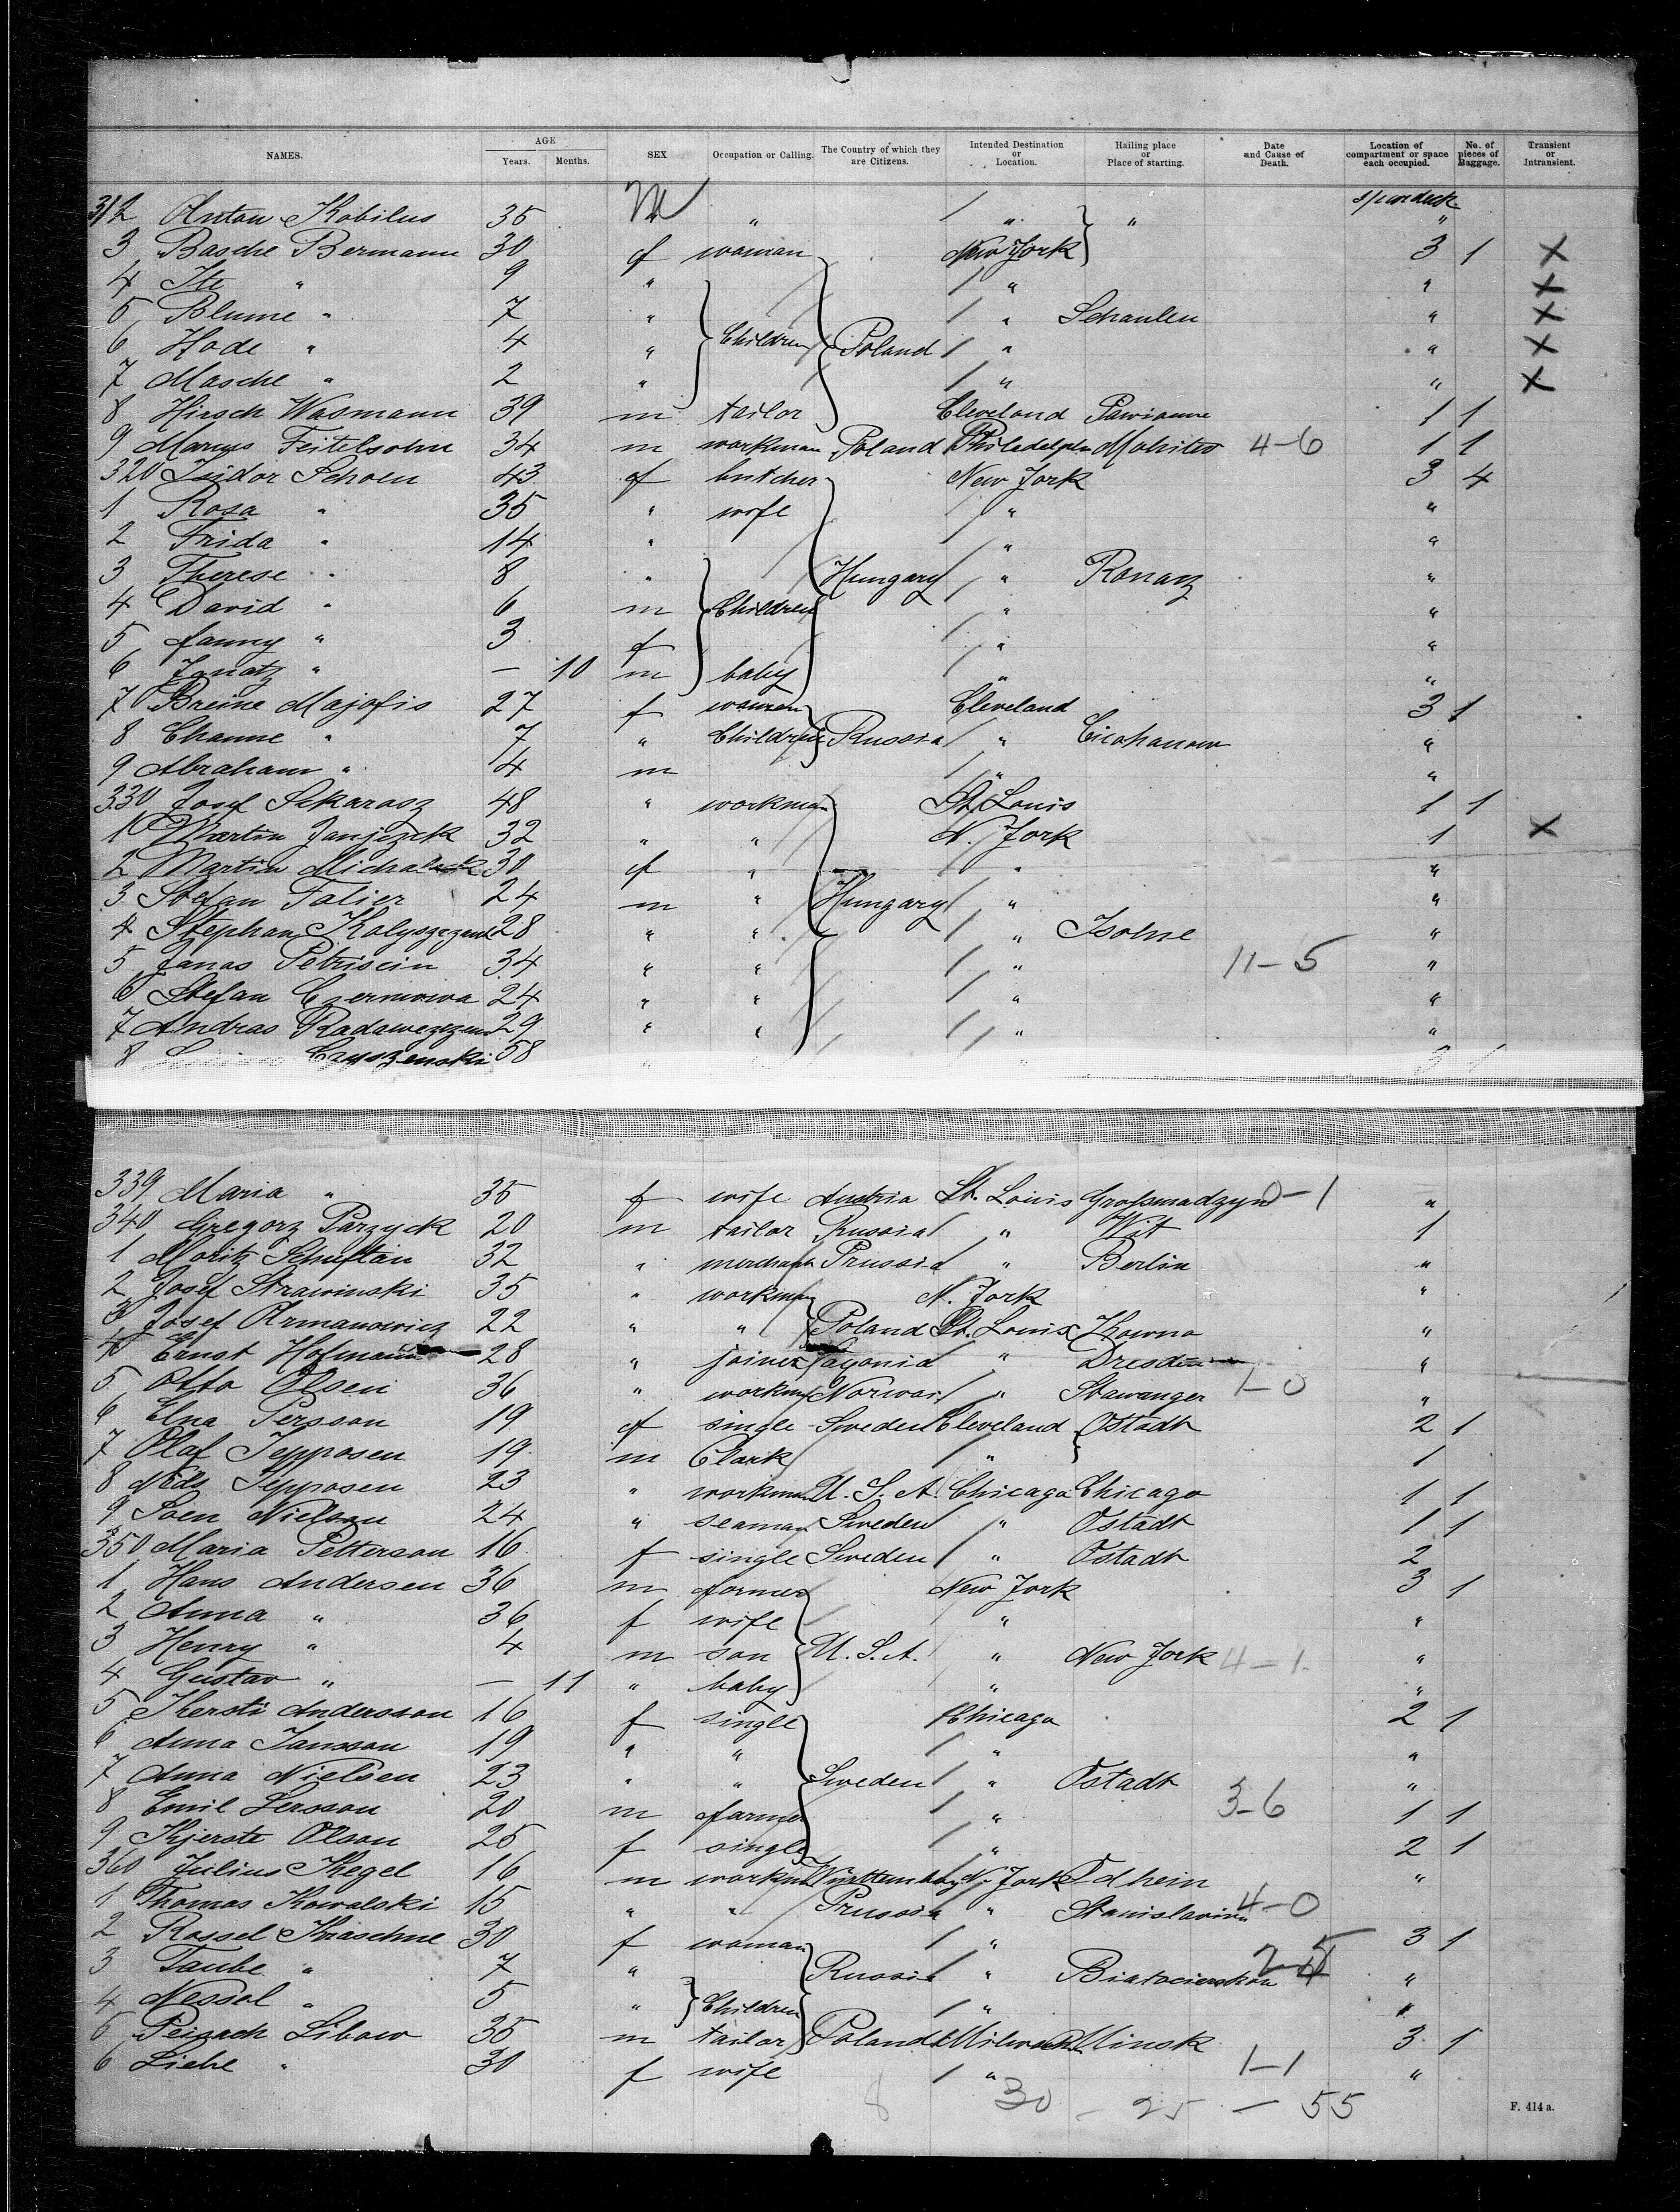 NAMES. AGE Years. Months. SEX Occupation or Calling. The Country of which they are Citizens. Intended Destination or Location. Hailing place or Place of starting. Date and Cause of Death. Location of compartment or space each occupied. No. of pieces of Baggage. Transient or Intransient.
312 Anton Kobilus 35 M " " " "
3 Basche Bermann 30 f woman New York 3 1 X
4 Ite " 9 " " " X
5 Blume " 7 " " Schaulen " X
6 Hode " 4 " Children Poland " " X
7 Masche " 2 " " " X
8 Hirsch Wasmann 39 m tailor Cleveland 1 1
9 Feitelsohn 34 m workman Poland Philadelphia 4-6 1 1
320 Isidor Schoen 43 f butcher New York 3 4
1 Rosa " 35 " wife " "
2 Frida " 14 " " "
3 Therese " 8 " Hungary " "
4 David " 6 m Children " "
5 fanny " 3 f " "
6 Ignatz " — 10 m baby " "
7 Breine Majofis 27 f woman Cleveland 3 1
8 Channe " 7 " Children Russia " "
9 Abraham " 4 m " "
330 Josef Skarasz 48 " workman St. Louis 1 1
1 Martin 32 " " N. York 1 X
2 Martin 30 f " " "
3 Stefan Falier 24 m " Hungary " "
4 Stephan 28 " " " "
5 Janos Petriscin 34 " " " 11-5 "
6 Stefan 24 " " " "
7 Andras 29 " " " "
8 58 " " 3 1
339 Maria " 35 f wife Austria St. Louis 0-1 "
340 Gregorz Parzyck 20 m tailor Russia " Wit 1
1 Moritz Schuftan 32 " merchant Prussia " Berlin "
2 Josef Strawinski 35 " workman N. York "
3 Josef Armanowicz 22 " " Poland St. Louis Kowno "
4 Ernst Hofmann 28 " joiner " Dresden "
5 Otto Olsen 36 " workman " Stawanger 1-0 "
6 Elna Persson 19 f single Sweden Cleveland Ostadt 2 1
7 Olaf Jepposen 19 m Clark " 1
8 Jepposen 23 " workman U.S.A. Chicago Chicago 1 1
9 Soen Nielson 24 " seaman Sweden " Ostadt 1 1
350 Maria Petterson 16 f single Sweden " Ostadt 2
1 Hans Andersen 36 m farmer New York 3 1
2 Anna " 36 f wife " "
3 Henry " 4 m son U.S.A. " New York 4-1 "
4 Gustav " — 11 " baby " "
5 Kersti Andersson 16 f single Chicago 2 1
6 Anna Jansson 19 " " " "
7 Anna Nielsen 23 " " Sweden " Ostadt "
8 Emil Lersson 20 m farmer " 3-6 1 1
9 Kjerste Olson 25 f single " 2 1
360 Julius Kegel 16 m N. York "
1 Thomas Kowalski 15 " " Prussia " 4-0
2 Rossel 30 f woman " 3 1
3 Taube " 7 " Russia " "
4 Nessel " 5 " Children " "
5 Peisach Libow 35 m tailor Poland Minsk 3 1
6 Liebe " 30 f wife " 1-1 "
8 30 - 25 - 55
F. 414 a.